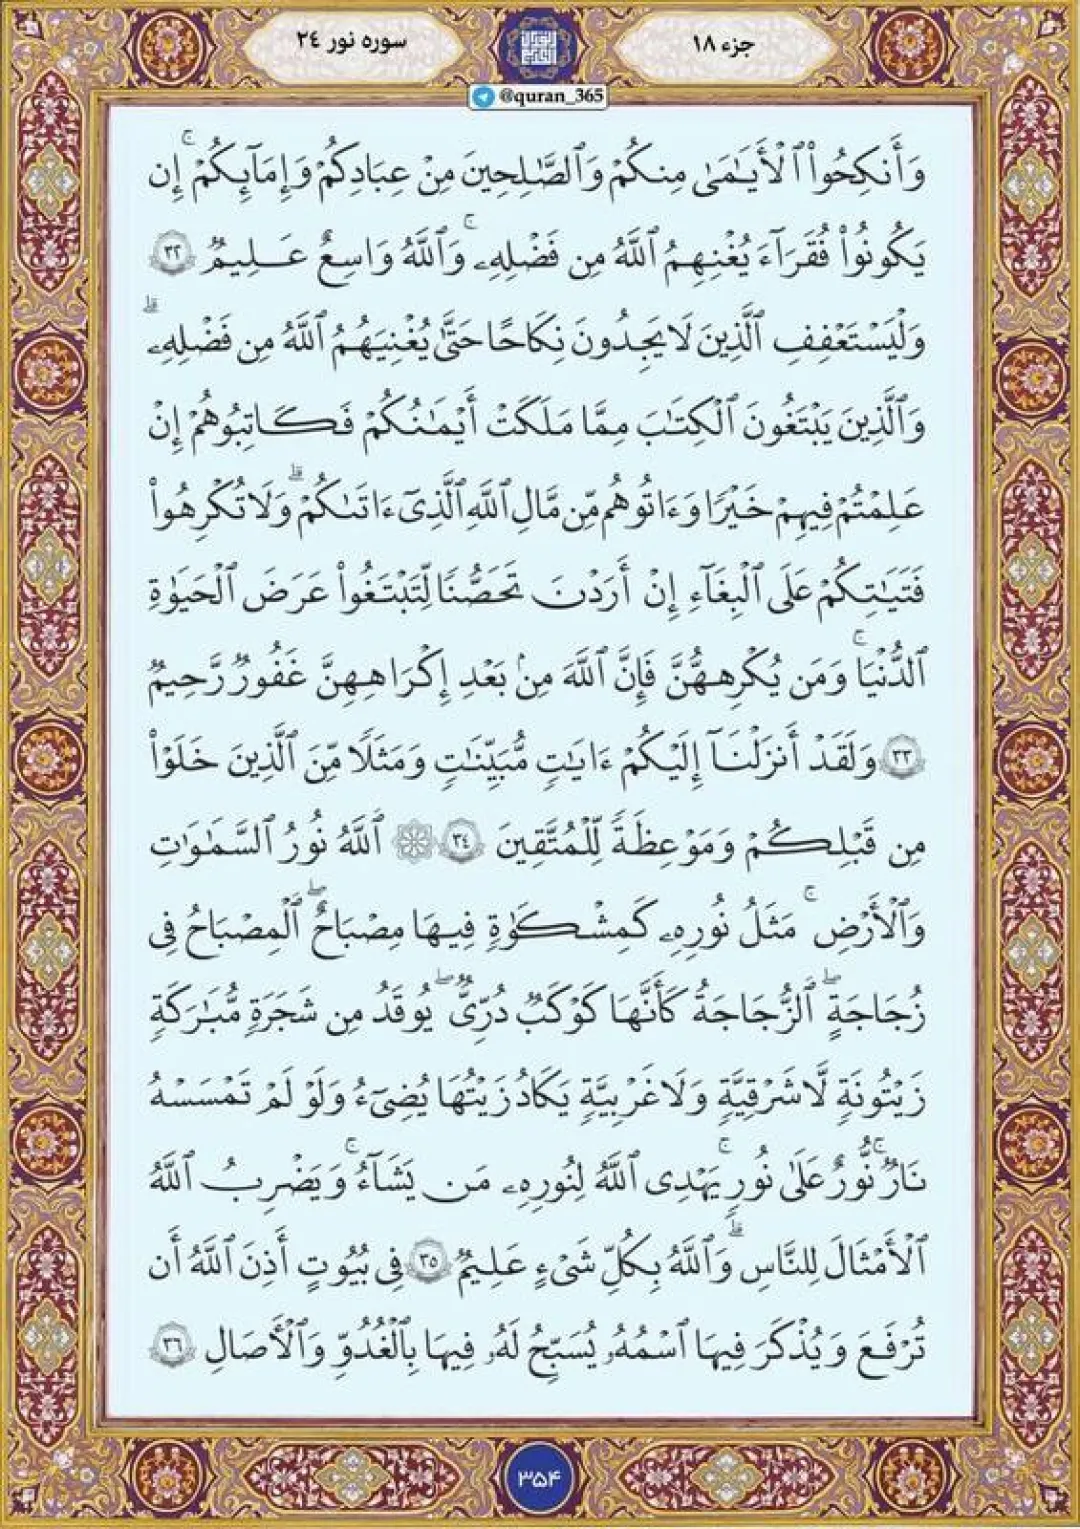 جزء ۱۸
سوره نور ۲۴
@quran_365
وَأَنكِحُوا۟ ٱلْأَيَـٰمَىٰ مِنكُمْ وَٱلصَّـٰلِحِينَ مِنْ عِبَادِكُمْ وَإِمَآئِكُمْ ۚ إِن
يَكُونُوا۟ فُقَرَآءَ يُغْنِهِمُ ٱللَّهُ مِن فَضْلِهِۦ ۗ وَٱللَّهُ وَٰسِعٌ عَلِيمٌ ٣٢
وَلْيَسْتَعْفِفِ ٱلَّذِينَ لَا يَجِدُونَ نِكَاحًا حَتَّىٰ يُغْنِيَهُمُ ٱللَّهُ مِن فَضْلِهِۦ ۗ
وَٱلَّذِينَ يَبْتَغُونَ ٱلْكِتَـٰبَ مِمَّا مَلَكَتْ أَيْمَـٰنُكُمْ فَكَاتِبُوهُمْ إِنْ
عَلِمْتُمْ فِيهِمْ خَيْرًا وَءَاتُوهُم مِّن مَّالِ ٱللَّهِ ٱلَّذِىٓ ءَاتَىٰكُمْ ۗ وَلَا تُكْرِهُوا۟
فَتَيَـٰتِكُمْ عَلَى ٱلْبِغَآءِ إِنْ أَرَدْنَ تَحَصُّنًا لِّتَبْتَغُوا۟ عَرَضَ ٱلْحَيَوٰةِ
ٱلدُّنْيَا ۚ وَمَن يُكْرِههُّنَّ فَإِنَّ ٱللَّهَ مِنۢ بَعْدِ إِكْرَٰهِهِنَّ غَفُورٌ رَّحِيمٌ
٣٣ وَلَقَدْ أَنزَلْنَآ إِلَيْكُمْ ءَايَـٰتٍ مُّبَيِّنَـٰتٍ وَمَثَلًا مِّنَ ٱلَّذِينَ خَلَوْا۟
مِن قَبْلِكُمْ وَمَوْعِظَةً لِّلْمُتَّقِينَ ٣٤ ۞ ٱللَّهُ نُورُ ٱلسَّمَـٰوَٰتِ
وَٱلْأَرْضِ ۚ مَثَلُ نُورِهِۦ كَمِشْكَوٰةٍ فِيهَا مِصْبَاحٌ ۖ ٱلْمِصْبَاحُ فِى
زُجَاجَةٍ ۖ ٱلزُّجَاجَةُ كَأَنَّهَا كَوْكَبٌ دُرِّىٌّ يُوقَدُ مِن شَجَرَةٍ مُّبَـٰرَكَةٍ
زَيْتُونَةٍ لَّا شَرْقِيَّةٍ وَلَا غَرْبِيَّةٍ يَكَادُ زَيْتُهَا يُضِىٓءُ وَلَوْ لَمْ تَمْسَسْهُ
نَارٌ ۚ نُّورٌ عَلَىٰ نُورٍ ۗ يَهْدِى ٱللَّهُ لِنُورِهِۦ مَن يَشَآءُ ۚ وَيَضْرِبُ ٱللَّهُ
ٱلْأَمْثَـٰلَ لِلنَّاسِ ۗ وَٱللَّهُ بِكُلِّ شَىْءٍ عَلِيمٌ ٣٥ فِى بُيُوتٍ أَذِنَ ٱللَّهُ أَن
تُرْفَعَ وَيُذْكَرَ فِيهَا ٱسْمُهُۥ يُسَبِّحُ لَهُۥ فِيهَا بِٱلْغُدُوِّ وَٱلْـَٔاصَالِ ٣٦
۳۵۴